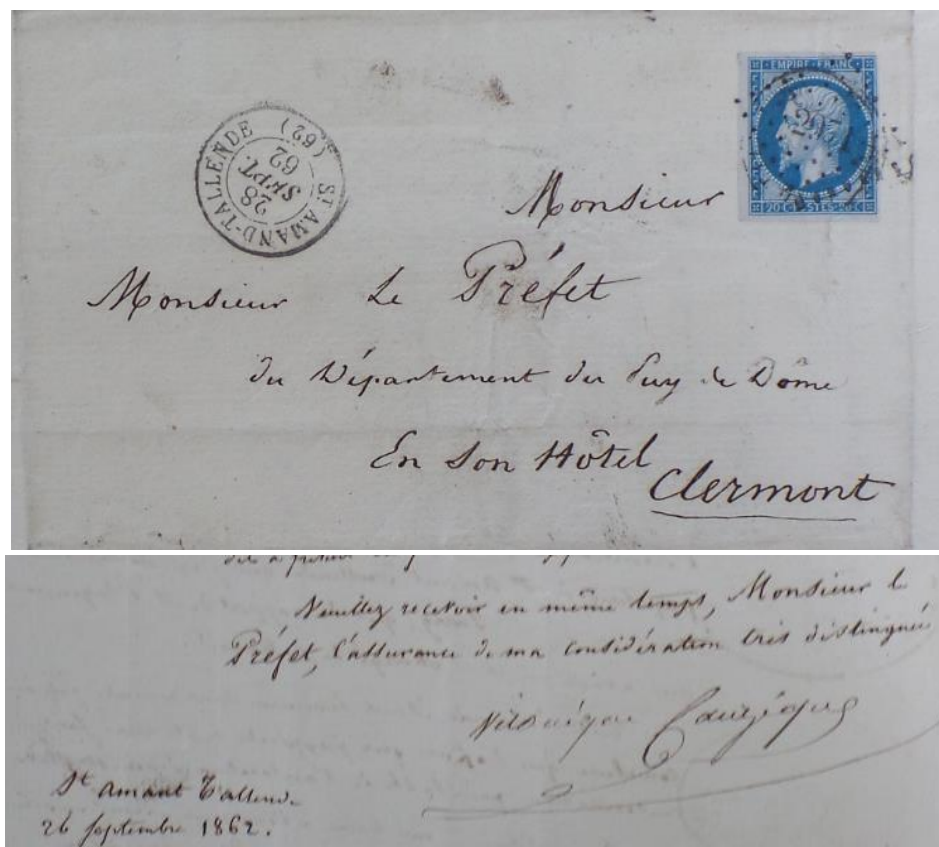 EMPIRE·FRANC
20 C POSTES 20 C
ST AMAND-TALLENDE (62)
28
SEPT.
62
Monsieur
Monsieur Le Préfet
du Département du Puy de Dôme
En son Hôtel
Clermont
Veuillez recevoir en même temps, Monsieur le
Préfet, l'assurance de ma considération très distinguée
St Amant Tallend.
26 septembre 1862.